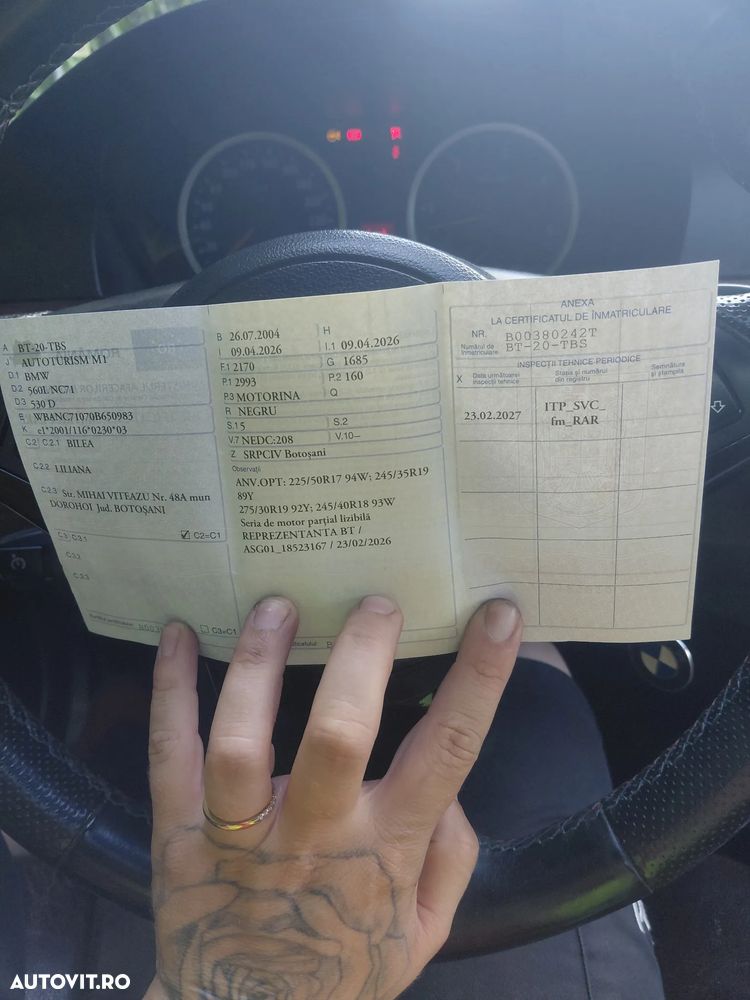 A BT-20-TBS
J AUTOTURISM M1
D.1 BMW
D.2 560L/NC71
D.3 530 D
E WBANC71070B650983
K e1*2001/116*0230*03
C.2 C.2.1 BILEA
C.2.2 LILIANA
C.2.3 Str. MIHAI VITEAZU Nr. 48A mun
DOROHOI Jud. BOTOȘANI
C.3 C.3.1 C2=C1
C.3.2
C.3.3
C3=C1
B 26.07.2004 H
I 09.04.2026 I.1 09.04.2026
F.1 2170 G 1685
P.1 2993 P.2 160
P.3 MOTORINA
R NEGRU
S.1 5 S.2
V.7 NEDC:208 V.10 --
Z SRPCIV Botoșani
Observații
ANV.OPT: 225/50R17 94W; 245/35R19
89Y
275/30R19 92Y; 245/40R18 93W
Seria de motor parțial lizibilă
REPREZENTANTA BT /
ASG01_18523167 / 23/02/2026
ANEXA
LA CERTIFICATUL DE ÎNMATRICULARE
NR. B00380242T
Numărul de înmatriculare BT-20-TBS
INSPECȚII TEHNICE PERIODICE
X Data următoarei inspecții tehnice Stația și numărul din registru Semnătura și ștampila
23.02.2027 ITP_SVC_
fm_RAR
AUTOVIT.RO